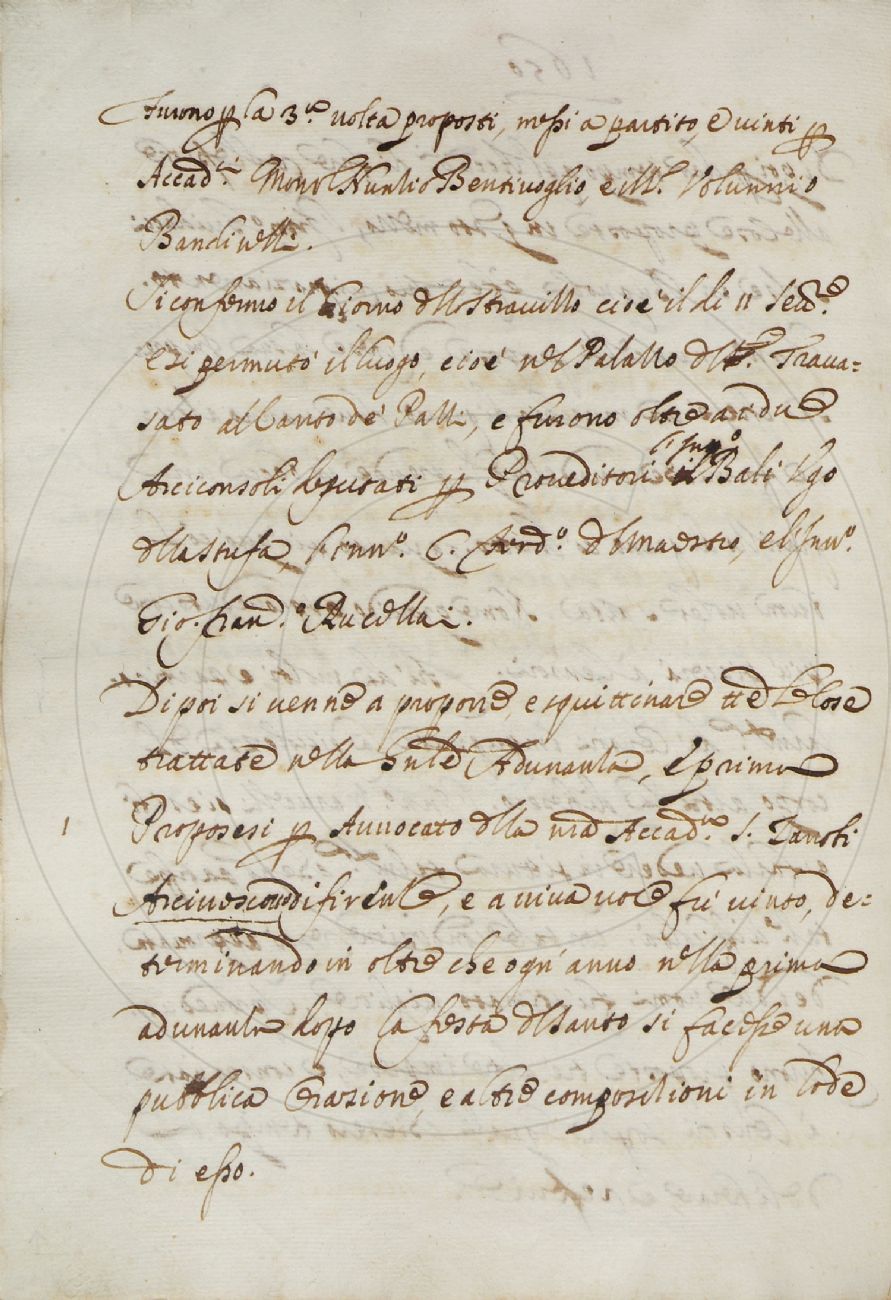 Furono p la 3.ª volta proposti, messi a partito, e vinti p
Accad.ci Mons.r Nunzio Bentivoglio, e il S.r Volunnio
Bandinelli.
Si confermò il Giorno dello Stravizzo cioè il dì 11 Sett.re
e si permutò il luogo, cioè nel Palazzo del Trava=
sato al Canto de' Pazzi, e furono oltre a i due
Arciconsoli deputati p Proveditori il Balì Ugo
della Stufa, Ferd.o del Maestro, e
Gio. Fran.co Rucellai.
Dipoi si venne a proporre, e squittinare tt.e le Cose
trattate nella Adunanza, e prima
1 Proposesi p Avvocato della n̄ra Accad.a S. Zanobi
Arcivescovo di Firenze, e a viva voce fù vinto, de=
terminando in oltre che ogn' anno nella prima
adunanza dopo la festa del Santo si facesse una
pubblica Orazione, e altre composizioni in lode
di esso.